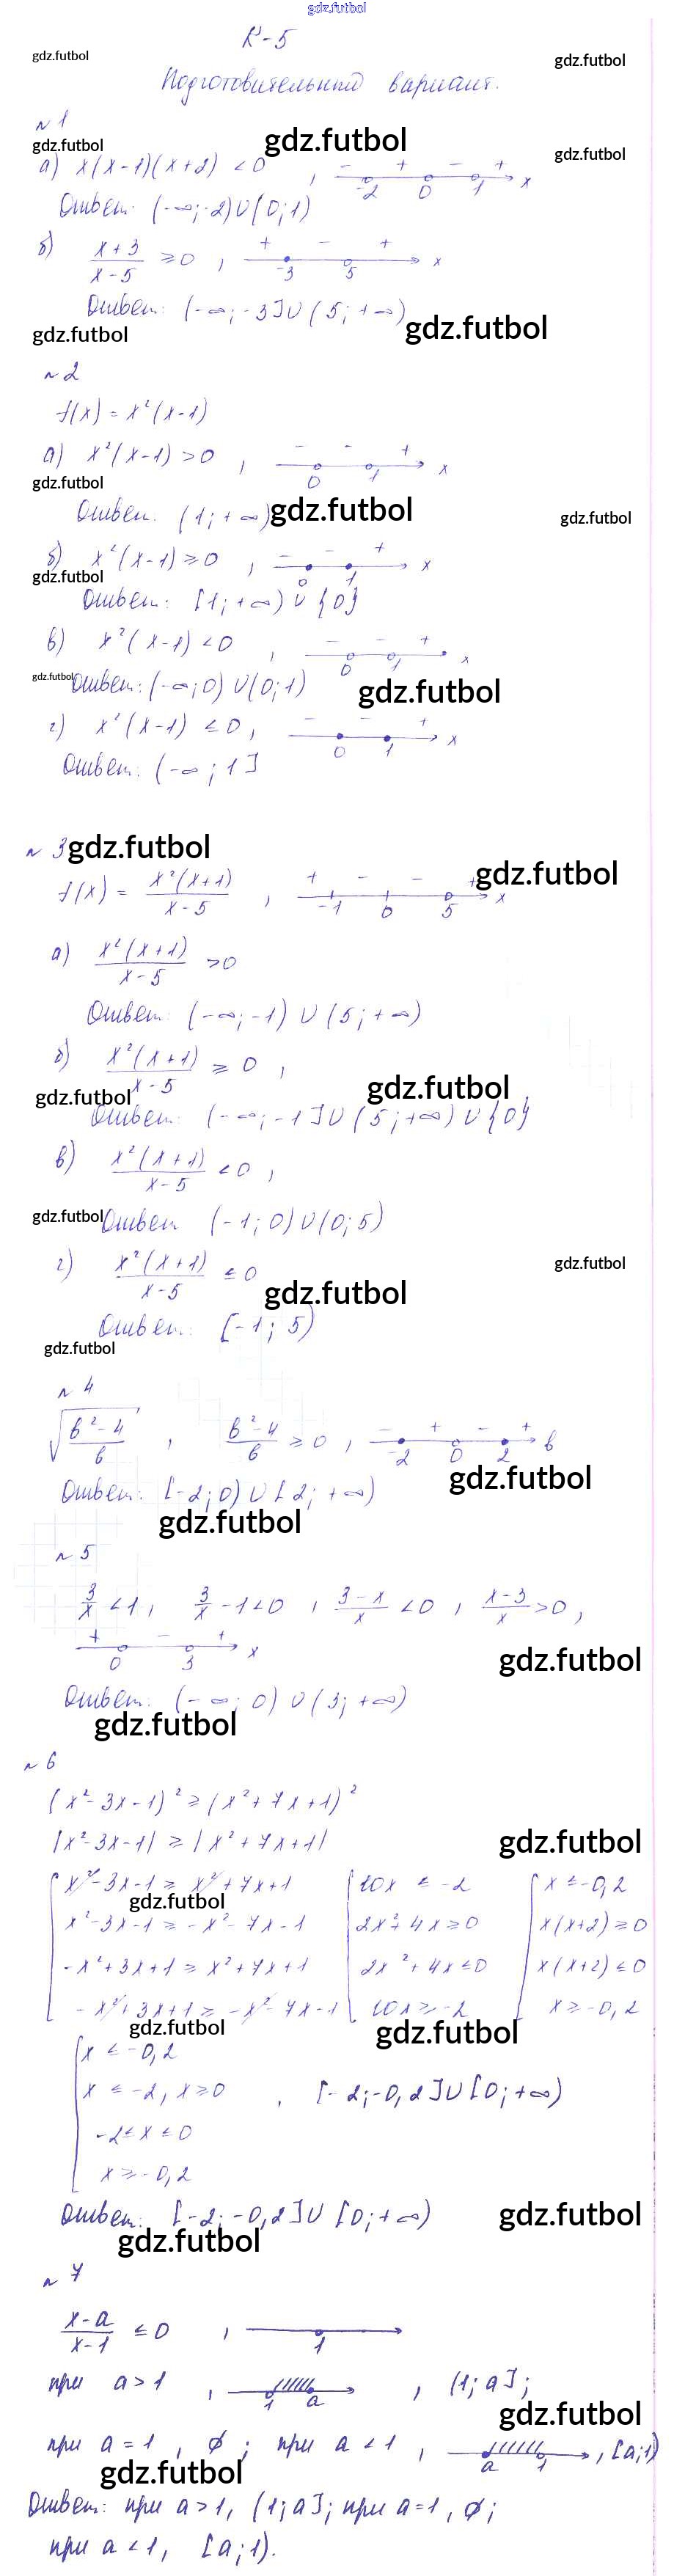 gdz.futbol
К-5
gdz.futbol
gdz.futbol
Подготовительный вариант.
№1
gdz.futbol
gdz.futbol
gdz.futbol
а) x(x-1)(x+2) < 0 , - + - + -2 0 1 x
Ответ: (-∞;-2)∪(0;1)
б) (x+3)/(x-5) ≥ 0 , + - + -3 5 x
Ответ: (-∞;-3]∪(5;+∞)
gdz.futbol
gdz.futbol
№2
f(x) = x²(x-1)
а) x²(x-1) > 0 , - - + 0 1 x
gdz.futbol
Ответ: (1;+∞)
gdz.futbol
gdz.futbol
б) x²(x-1) ≥ 0 , - - + 0 1 x
gdz.futbol
Ответ: [1;+∞) ∪ {0}
в) x²(x-1) < 0 , - - + 0 1 x
gdz.futbol
Ответ: (-∞;0) ∪(0;1)
gdz.futbol
г) x²(x-1) ≤ 0 , - - + 0 1 x
Ответ: (-∞;1]
№3
gdz.futbol
gdz.futbol
f(x) = x²(x+1)/(x-5) , + - - + -1 0 5 x
а) x²(x+1)/(x-5) > 0
Ответ: (-∞;-1) ∪ (5;+∞)
б) x²(x+1)/(x-5) ≥ 0 ,
gdz.futbol
gdz.futbol
Ответ: (-∞;-1]∪(5;+∞) ∪{0}
в) x²(x+1)/(x-5) < 0 ,
gdz.futbol
Ответ (-1;0)∪(0;5)
г) x²(x+1)/(x-5) ≤ 0
gdz.futbol
gdz.futbol
Ответ: [-1;5)
gdz.futbol
№4
√((b²-4)/b) , (b²-4)/b ≥ 0 , - + - + -2 0 2 b
gdz.futbol
Ответ: [-2;0)∪[2;+∞)
gdz.futbol
№5
3/x < 1 , 3/x - 1 < 0 , (3-x)/x < 0 , (x-3)/x > 0 ,
+ - + 0 3 x
gdz.futbol
Ответ: (-∞;0) ∪(3;+∞)
gdz.futbol
№6
(x²-3x-1)² ≥ (x²+7x+1)²
|x²-3x-1| ≥ |x²+7x+1|
gdz.futbol
x²-3x-1 ≥ x²+7x+1 10x ≤ -2 x ≤ -0,2
gdz.futbol
x²-3x-1 ≥ -x²-7x-1 2x²+4x ≥ 0 x(x+2) ≥ 0
-x²+3x+1 ≥ x²+7x+1 2x²+4x ≤ 0 x(x+2) ≤ 0
-x²+3x+1 ≥ -x²-7x-1 10x ≥ -2 x ≥ -0,2
gdz.futbol
gdz.futbol
x ≤ -0,2
x ≤ -2, x ≥ 0 , [-2;-0,2]∪[0;+∞)
-2 ≤ x ≤ 0
x ≥ -0,2
Ответ: [-2;-0,2]∪[0;+∞)
gdz.futbol
gdz.futbol
№7
(x-a)/(x-1) ≤ 0 , 1
при a > 1 , 1 a , (1;a];
gdz.futbol
при a = 1 , ∅ ; при a < 1 , a 1 , [a;1)
gdz.futbol
Ответ: при a > 1, (1;a]; при a = 1, ∅;
при a < 1, [a;1).